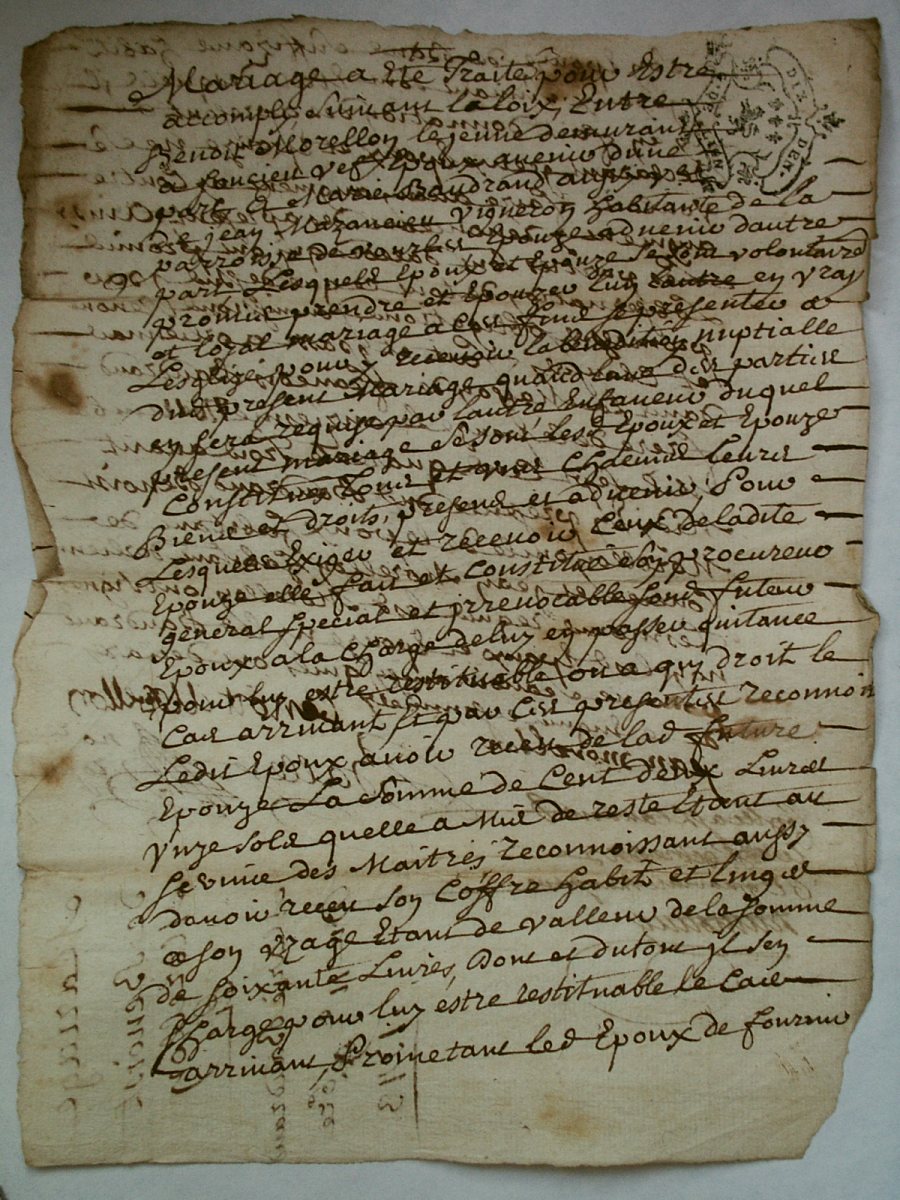 Mariage a Ete Traité pour Estre
accomply suivant la loix, Entre
Benoit Morellon le jeune demurant
a lancien vef Epoux avenir dune
part et Marie Baudrand aussy vef
de jean Mazancieu Vigneron habitante de la
parroisse de Epouze advenir dautre
part Lesquels Epoux et Epouze se sont volontaired
promis prendre et Epouzer lun lautre en vray
et loyal mariage a ces fins se présenter a
Lesglize pour y recevoir la benediction nuptialle
dud présent Mariage quand lune des parties
en sera requise par lautre En faveur duquel
présent mariage se sont lesd Epoux et Epouze
Constitués Tous et uns Chacuns leurs
Biens et droits, présens et advenir, Pour
Lesquels Exiger et recevoir Ceux de ladite
Epouze elle fait et constitue son procureur
general special et irrevocable sond futeur
Epoux a la charge de luy en passer quitance
pour luy estre restituable ou a quy droit le
Cas arrivant, Et par Ces présentes reconnoit
Ledit Epoux avoir receu de lad future
Epouze La somme de Cent deux Livres
Unze sols quelle a Mis de reste Etant au
service des Maitres reconnoissant aussy
davoir receu son Coffre habit et linge
a son uzage Etant de valleur de la somme
de soixante Livres, Dont et du tout il sen
Charge pour luy estre restituable le Cas
arrivant, Prometant led Epoux de fournir